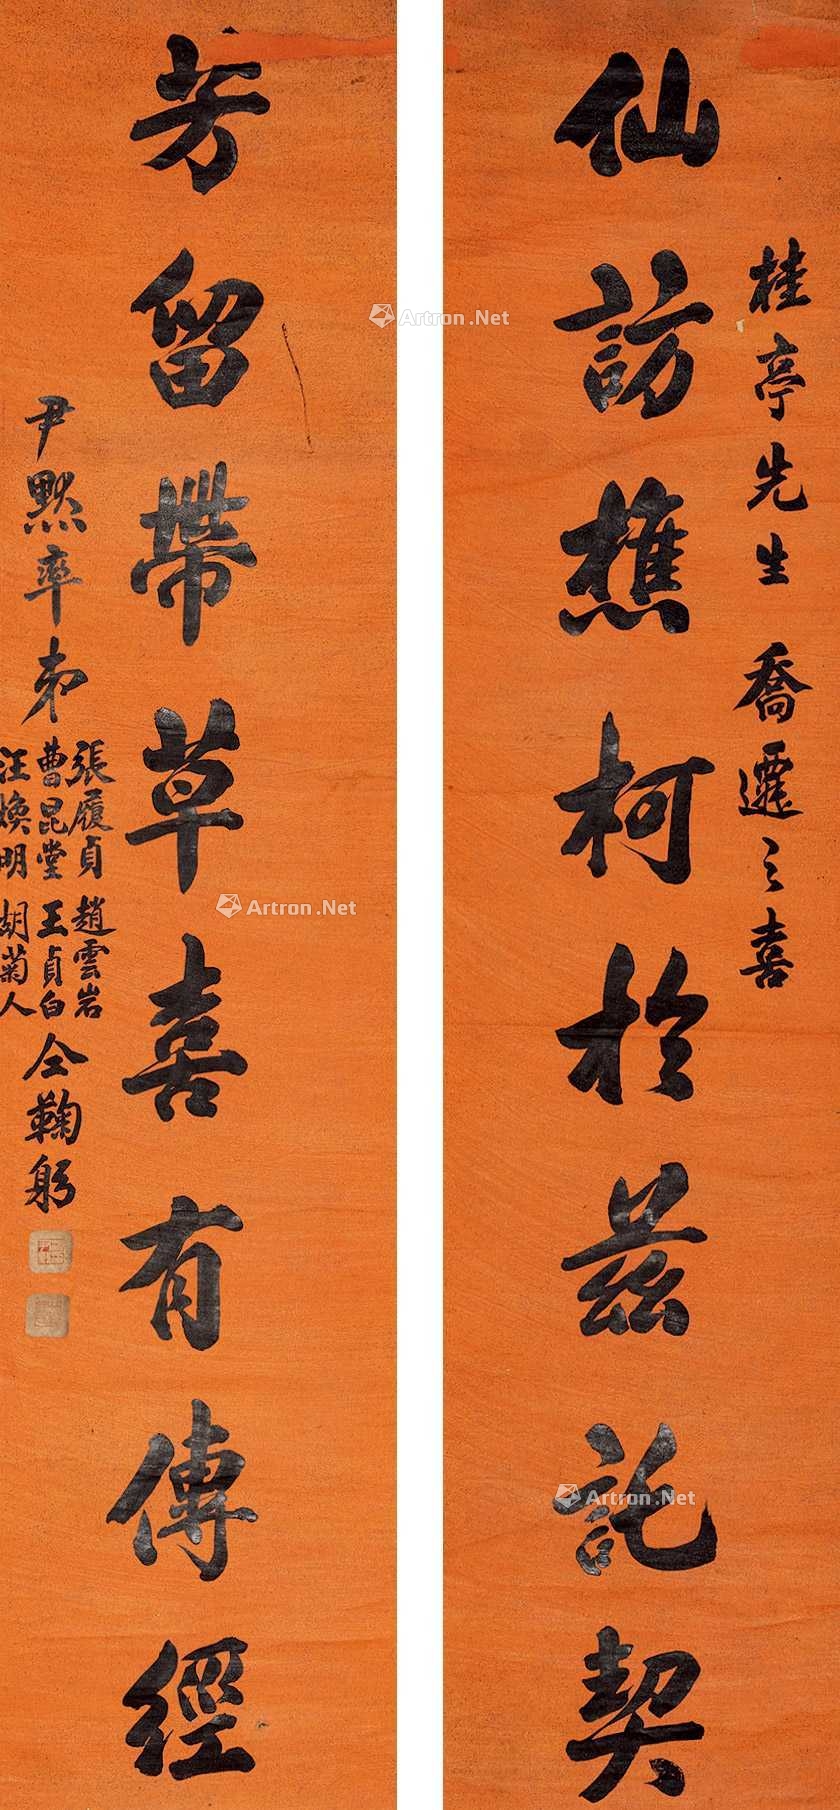 桂亭先生 喬遷之喜
仙訪樵柯於茲託契
芳留帶草喜有傳經
尹默率弟
張履貞 趙雲岩
曹昆堂 王貞白
汪煥明 胡菊人
仝鞠躬
Artron.Net
Artron.Net
Artron.Net